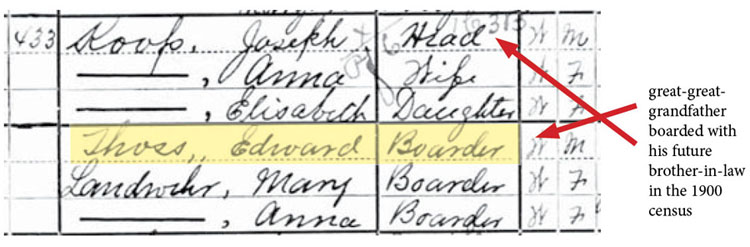 433 Koops, Joseph Head W M
—, Anna Wife W F
—, Elisabeth Daughter W F
Thoss, Edward Boarder W M
Landwehr, Mary Boarder W F
—, Anna Boarder W F
great-great-
grandfather
boarded with
his future
brother-in-law
in the 1900
census